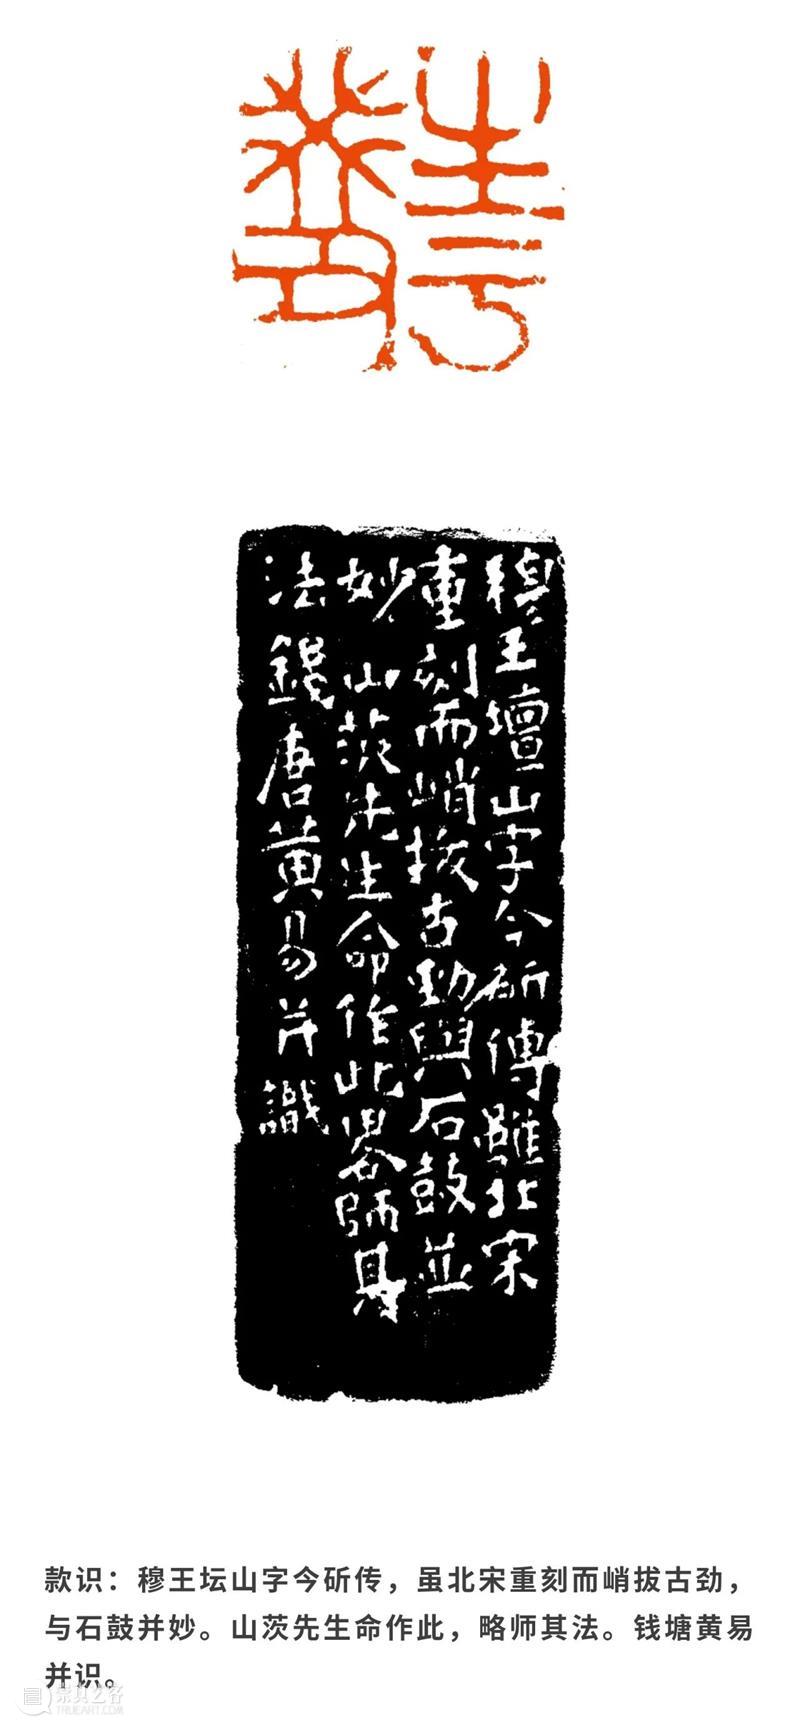 穆王壇山字今斫傳雖北宋
重刻而峭拔古勁與石鼓並
妙山茨先生命作此畧師其
法錢唐黃易并識
款识：穆王坛山字今斫传，虽北宋重刻而峭拔古劲，
与石鼓并妙。山茨先生命作此，略师其法。钱塘黄易
并识。
崇真艺客
TRUEART.COM